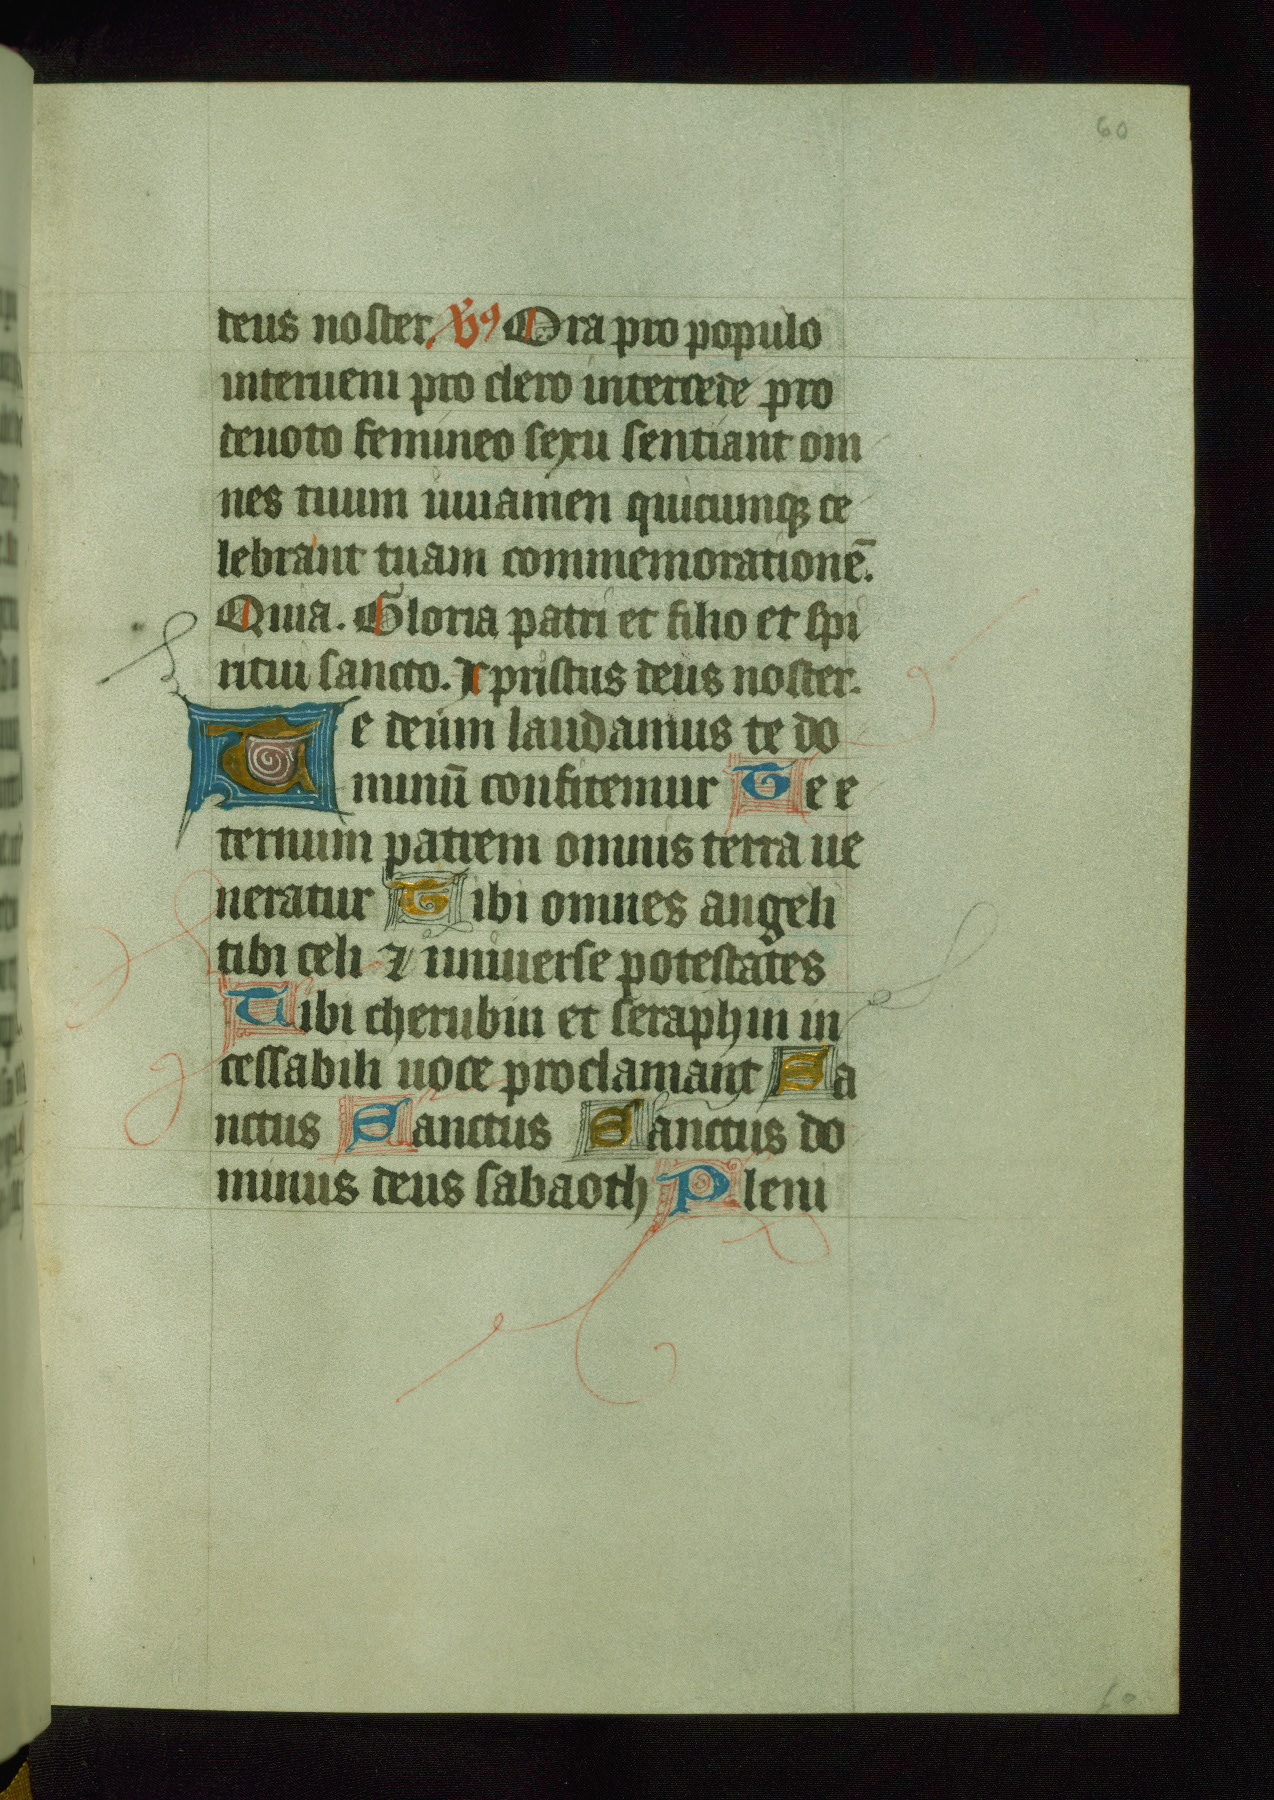 60
deus noster. V9 Ora pro populo
interueni pro clero intercede pro
deuoto femineo sexu sentiant om
nes tuum iuuamen quicumqꝫ ce
lebrant tuam commemorationē.
Quia. Gloria patri et filio et spi
ritui sancto. Xpristus deus noster.
Te deum laudamus te do
minuū confitemur Te e
ternum patrem omnis terra ue
neratur Tibi omnes angeli
tibi celi ⁊ uniuerse potestates
Tibi cherubin et seraphin in
cessabili uoce proclamant Sa
nctus Sanctus Sanctus do
minus deus sabaoth Pleni
60